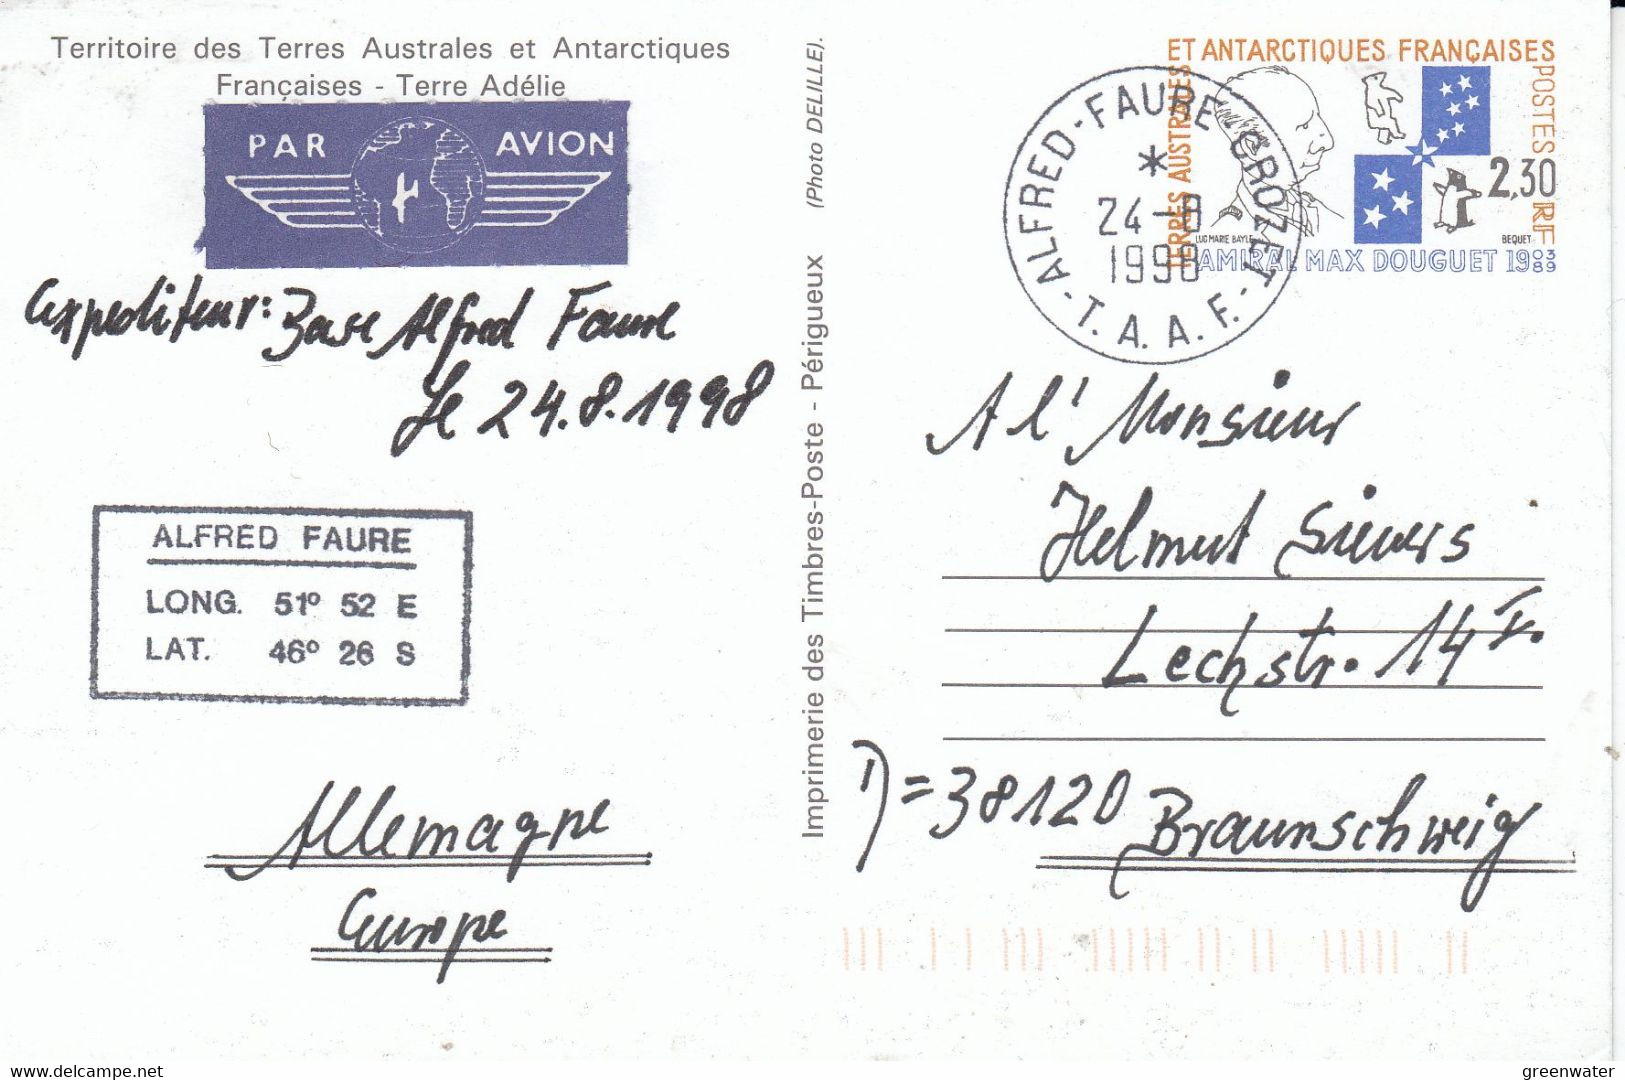 Territoire des Terres Australes et Antarctiques
Françaises - Terre Adélie
PAR AVION
expediteur: Base Alfred Faure
le 24.8.1998
ALFRED FAURE
LONG. 51° 52 E
LAT. 46° 26 S
Allemagne
Europe
Imprimerie des Timbres-Poste - Périgueux (Photo DELILLE).
TERRES AUSTRALES
ET ANTARCTIQUES FRANÇAISES
POSTES
2,30
RF
LUC MARIE BAYLE
BEQUET
AMIRAL MAX DOUGUET 1903 1989
ALFRED-FAURE-CROZET
*
24-8
1998
- T. A. A. F. -
A l' Monsieur
Helmut Sievers
Lechstr. 14 I.
D=38120 Braunschweig
delcampe.net
greenwater